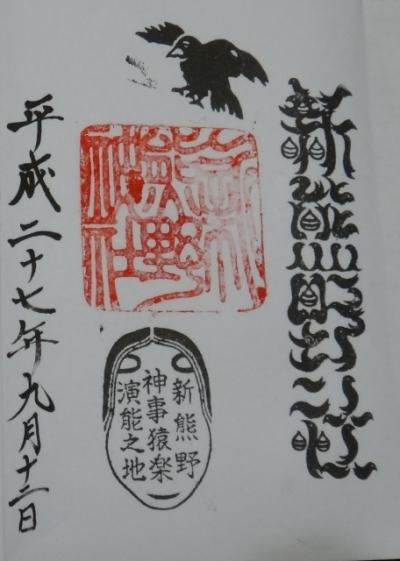 新熊野神社
新熊野神社
新熊野
神事猿楽
演能之地
平成二十七年九月十二日